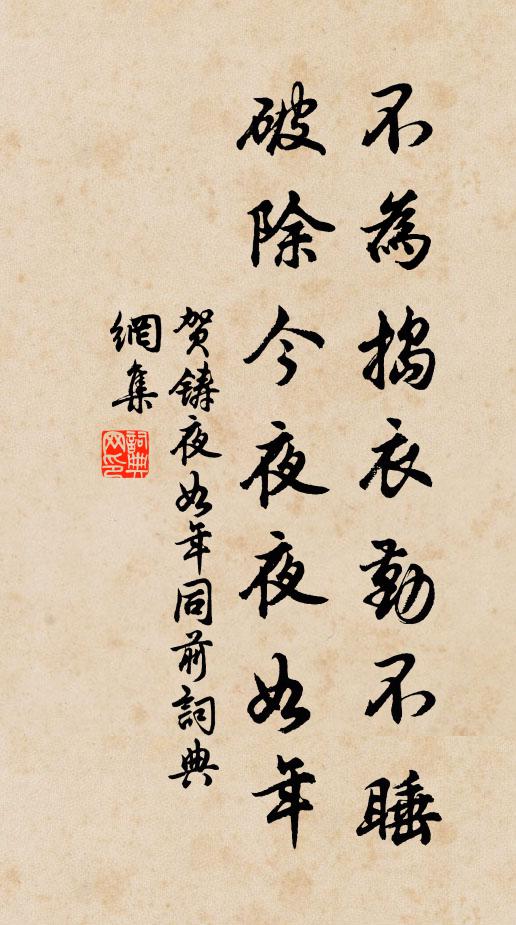 不為搗衣勤不睡
破除今夜夜如年
賀鑄夜如年同前詞典
網集
詞典
网印